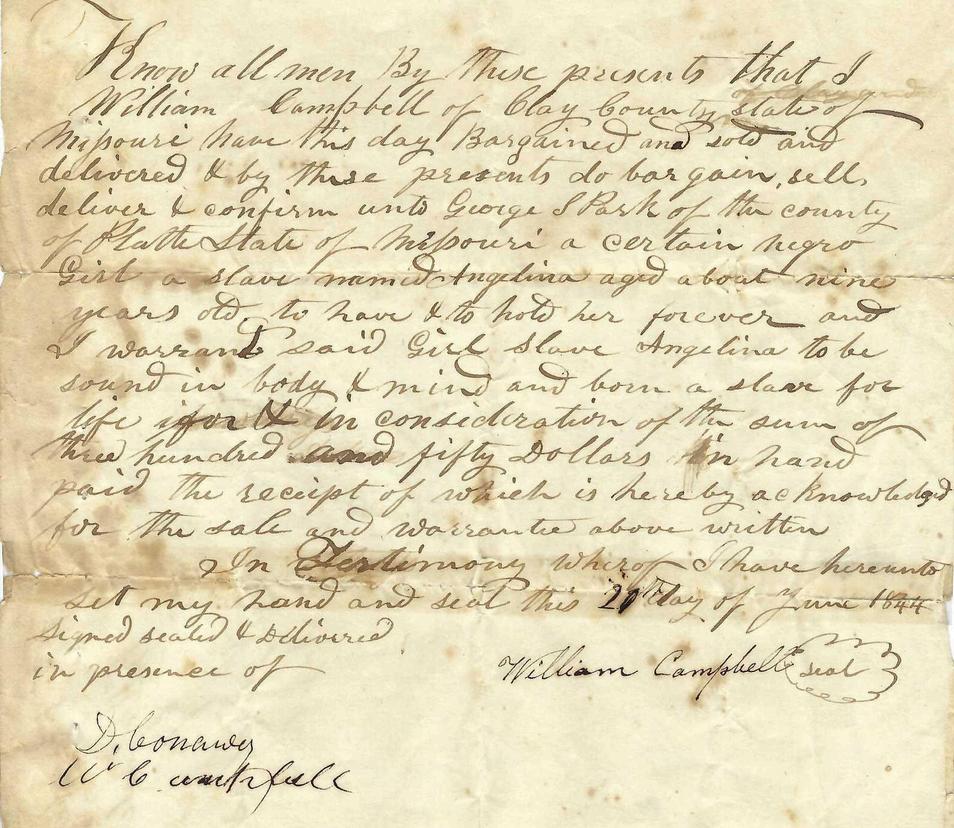 Know all men By these presents that I
William Campbell of Clay County state of
Missouri have this day Bargained and sold and
delivered & by these presents do bargain, sell,
deliver & confirm unto George S Park of the county
of Platte State of Missouri a certain negro
Girl a slave named Angelina aged about nine
years old, to have & to hold her forever and
I warrant said Girl Slave Angelina to be
sound in body & mind and born a slave for
life for & in consideration of the sum of
three hundred and fifty Dollars in hand
paid the receipt of which is hereby acknowledged
for the sale and warrantie above written
In Testimony wherof I have hereunto
set my hand and seal this day of June 1844
Signed sealed & Delivered
in presence of
William Campbell seal
D. Conawey
W Campbell